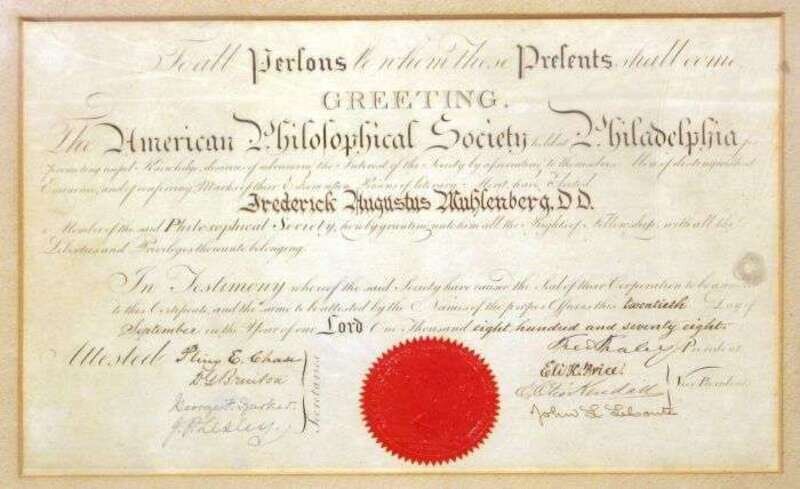 To all Persons to whom these Presents shall come
GREETING.
The American Philosophical Society held at Philadelphia for
promoting useful Knowledge, desirous of advancing the Interest of the Society by associating to themselves Men of distinguished
Eminence, and of conferring Marks of their Esteem upon Persons of literary Merit, have Elected
Frederick Augustus Muhlenberg, D D.
a Member of the said Philosophical Society, hereby granting unto him all the Rights of Fellowship, with all the
Liberties and Privileges thereunto belonging.
In Testimony whereof the said Society have caused the Seal of their Corporation to be
to this Certificate, and the same to be attested by the Names of the proper Officers this twentieth Day of
September in the Year of our Lord One Thousand eight hundred and seventy eight
Attested
Pliny E. Chase
D G Brinton
George F. Barker
J. P. Lesley
Secretaries
Fred Fraley President
Eli K. Price
E. Otis Kendall
John L LeConte
Vice Presidents